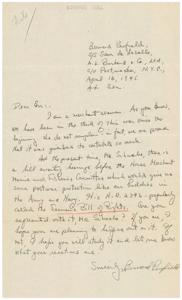 Bernard
April 16, 1945
At Sea
Dear Sir:
I am a merchant seaman. As you know,
we have been in the thick of this war since the
beginning. We do not complain - in fact we are proud
that it was possible to contribute so much.
At the present time, Mr. Schwabe, there is
a bill coming hearings before the House Merchant
Marine and Fisheries Committee which would give us
some postwar protection like our buddies in
the Army and Navy. It is H.R. 2346 - popularly
called the Seamen's Bill of Rights. Are you
acquainted with it, Mr. Schwabe? If you are, I
hope you are planning to help us out on it. If
not, I hope you will study it and let me know
what your reactions are.
Sincerely, Bernard